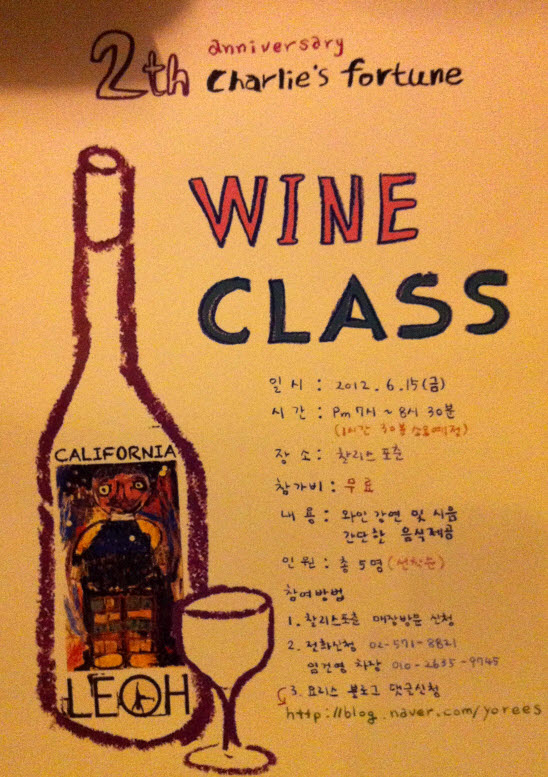 2th anniversary
Charlie's fortune
WINE
CLASS
일시 : 2012. 6. 15(금)
시간 : Pm 7시 ~ 8시 30분
(1시간 30분 소요예정)
장소 : 찰리스 포춘
참가비 : 무료
내용 : 와인강연 및 시음
간단한 음식제공
인원 : 총 5명 (선착순)
참여방법
1. 찰리스포춘 매장방문 신청
2. 전화신청 02-571-8821
염건영 차장 010-2635-9745
3. 요리스 블로그 댓글신청
http://blog.naver.com/yorees
CALIFORNIA
LEOH